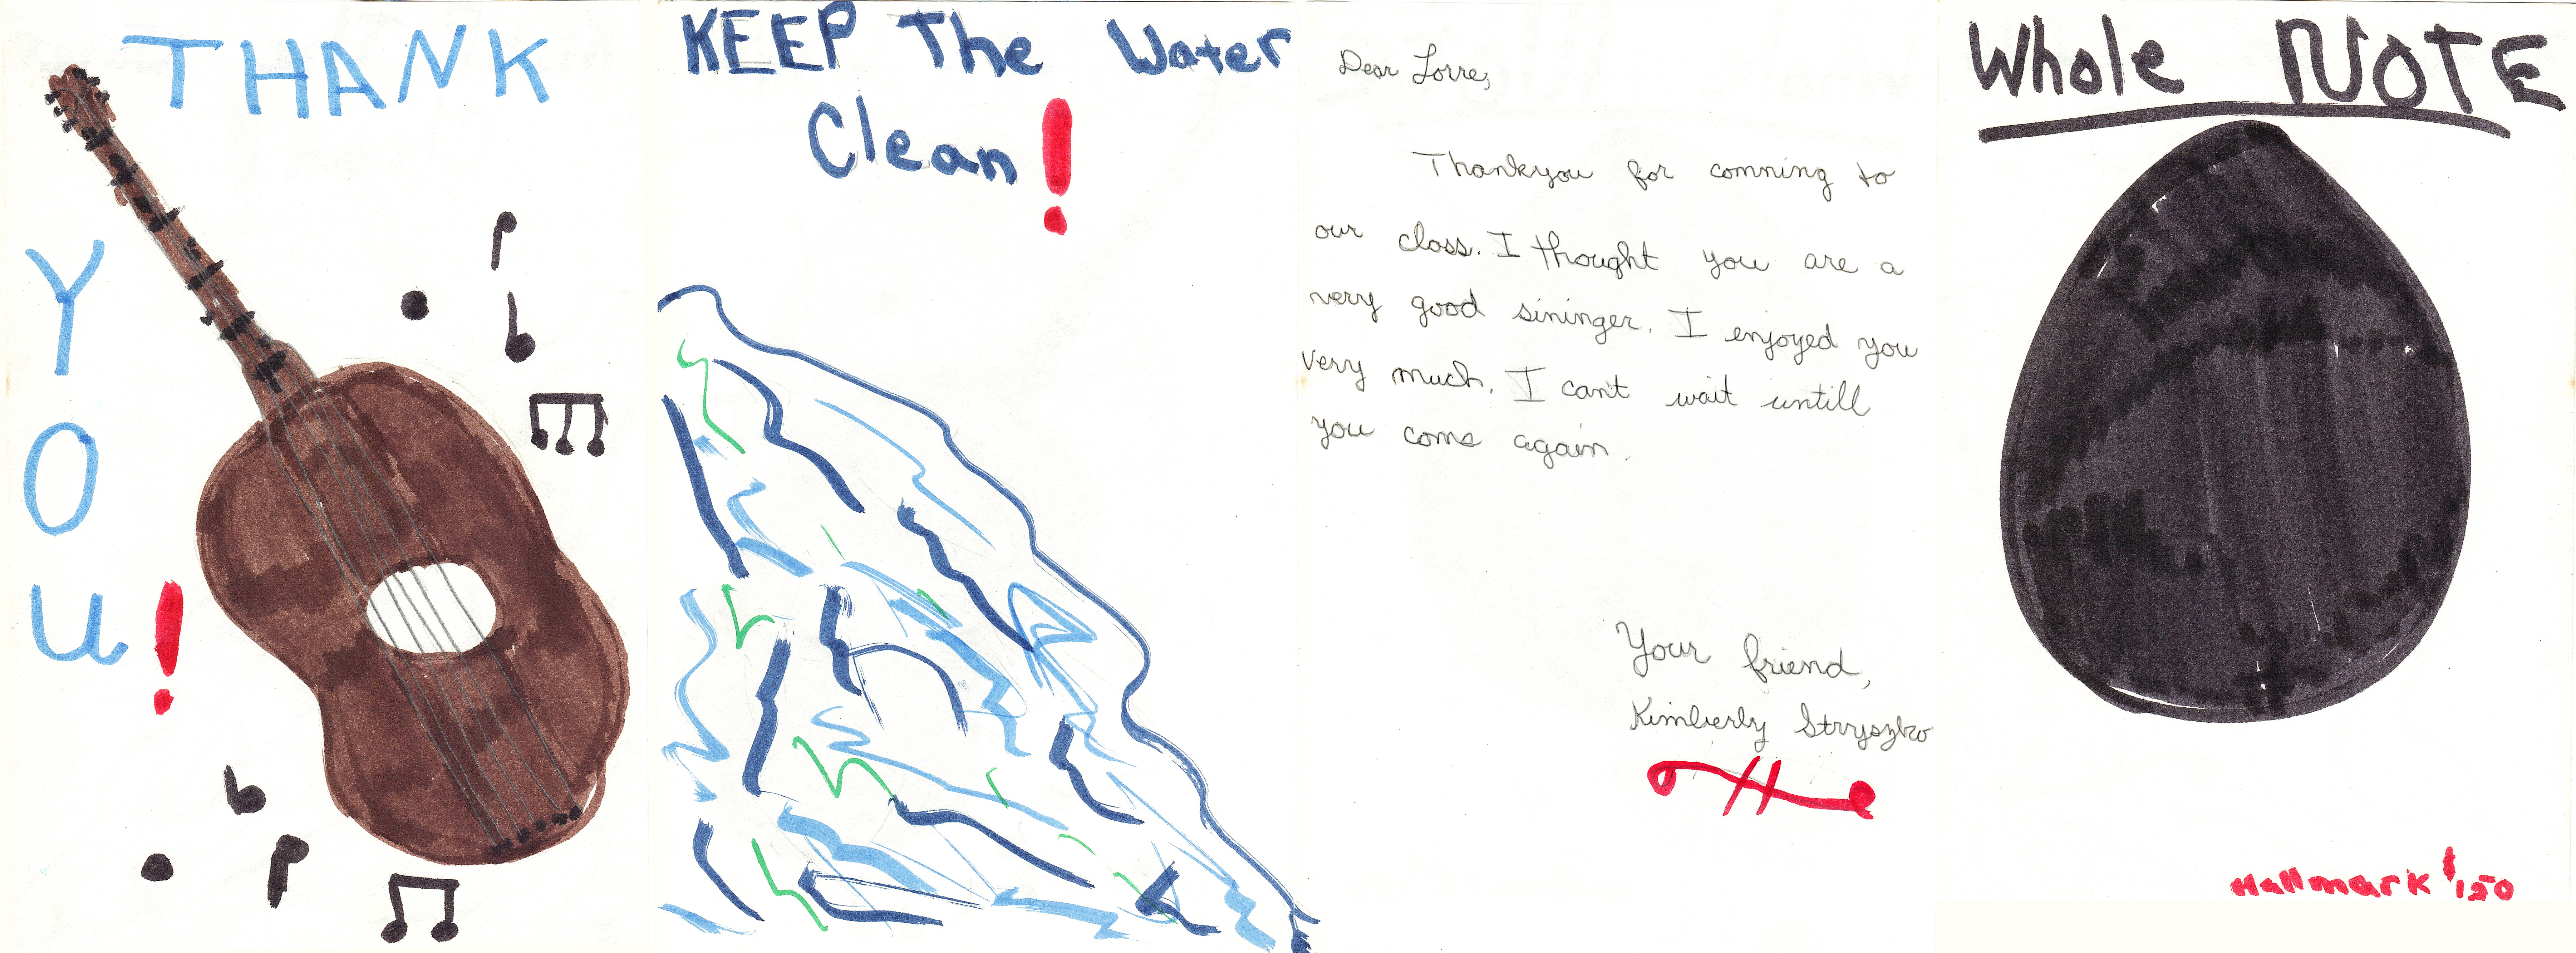 THANK
YOU!
KEEP The Water
Clean!
Dear Lorre,
Thankyou for comning to
our class. I thought you are a
very good sininger. I enjoyed you
very much. I can't wait untill
you come again.
Your friend,
Kimberly Stryszko
Whole NOTE
Hallmark $150